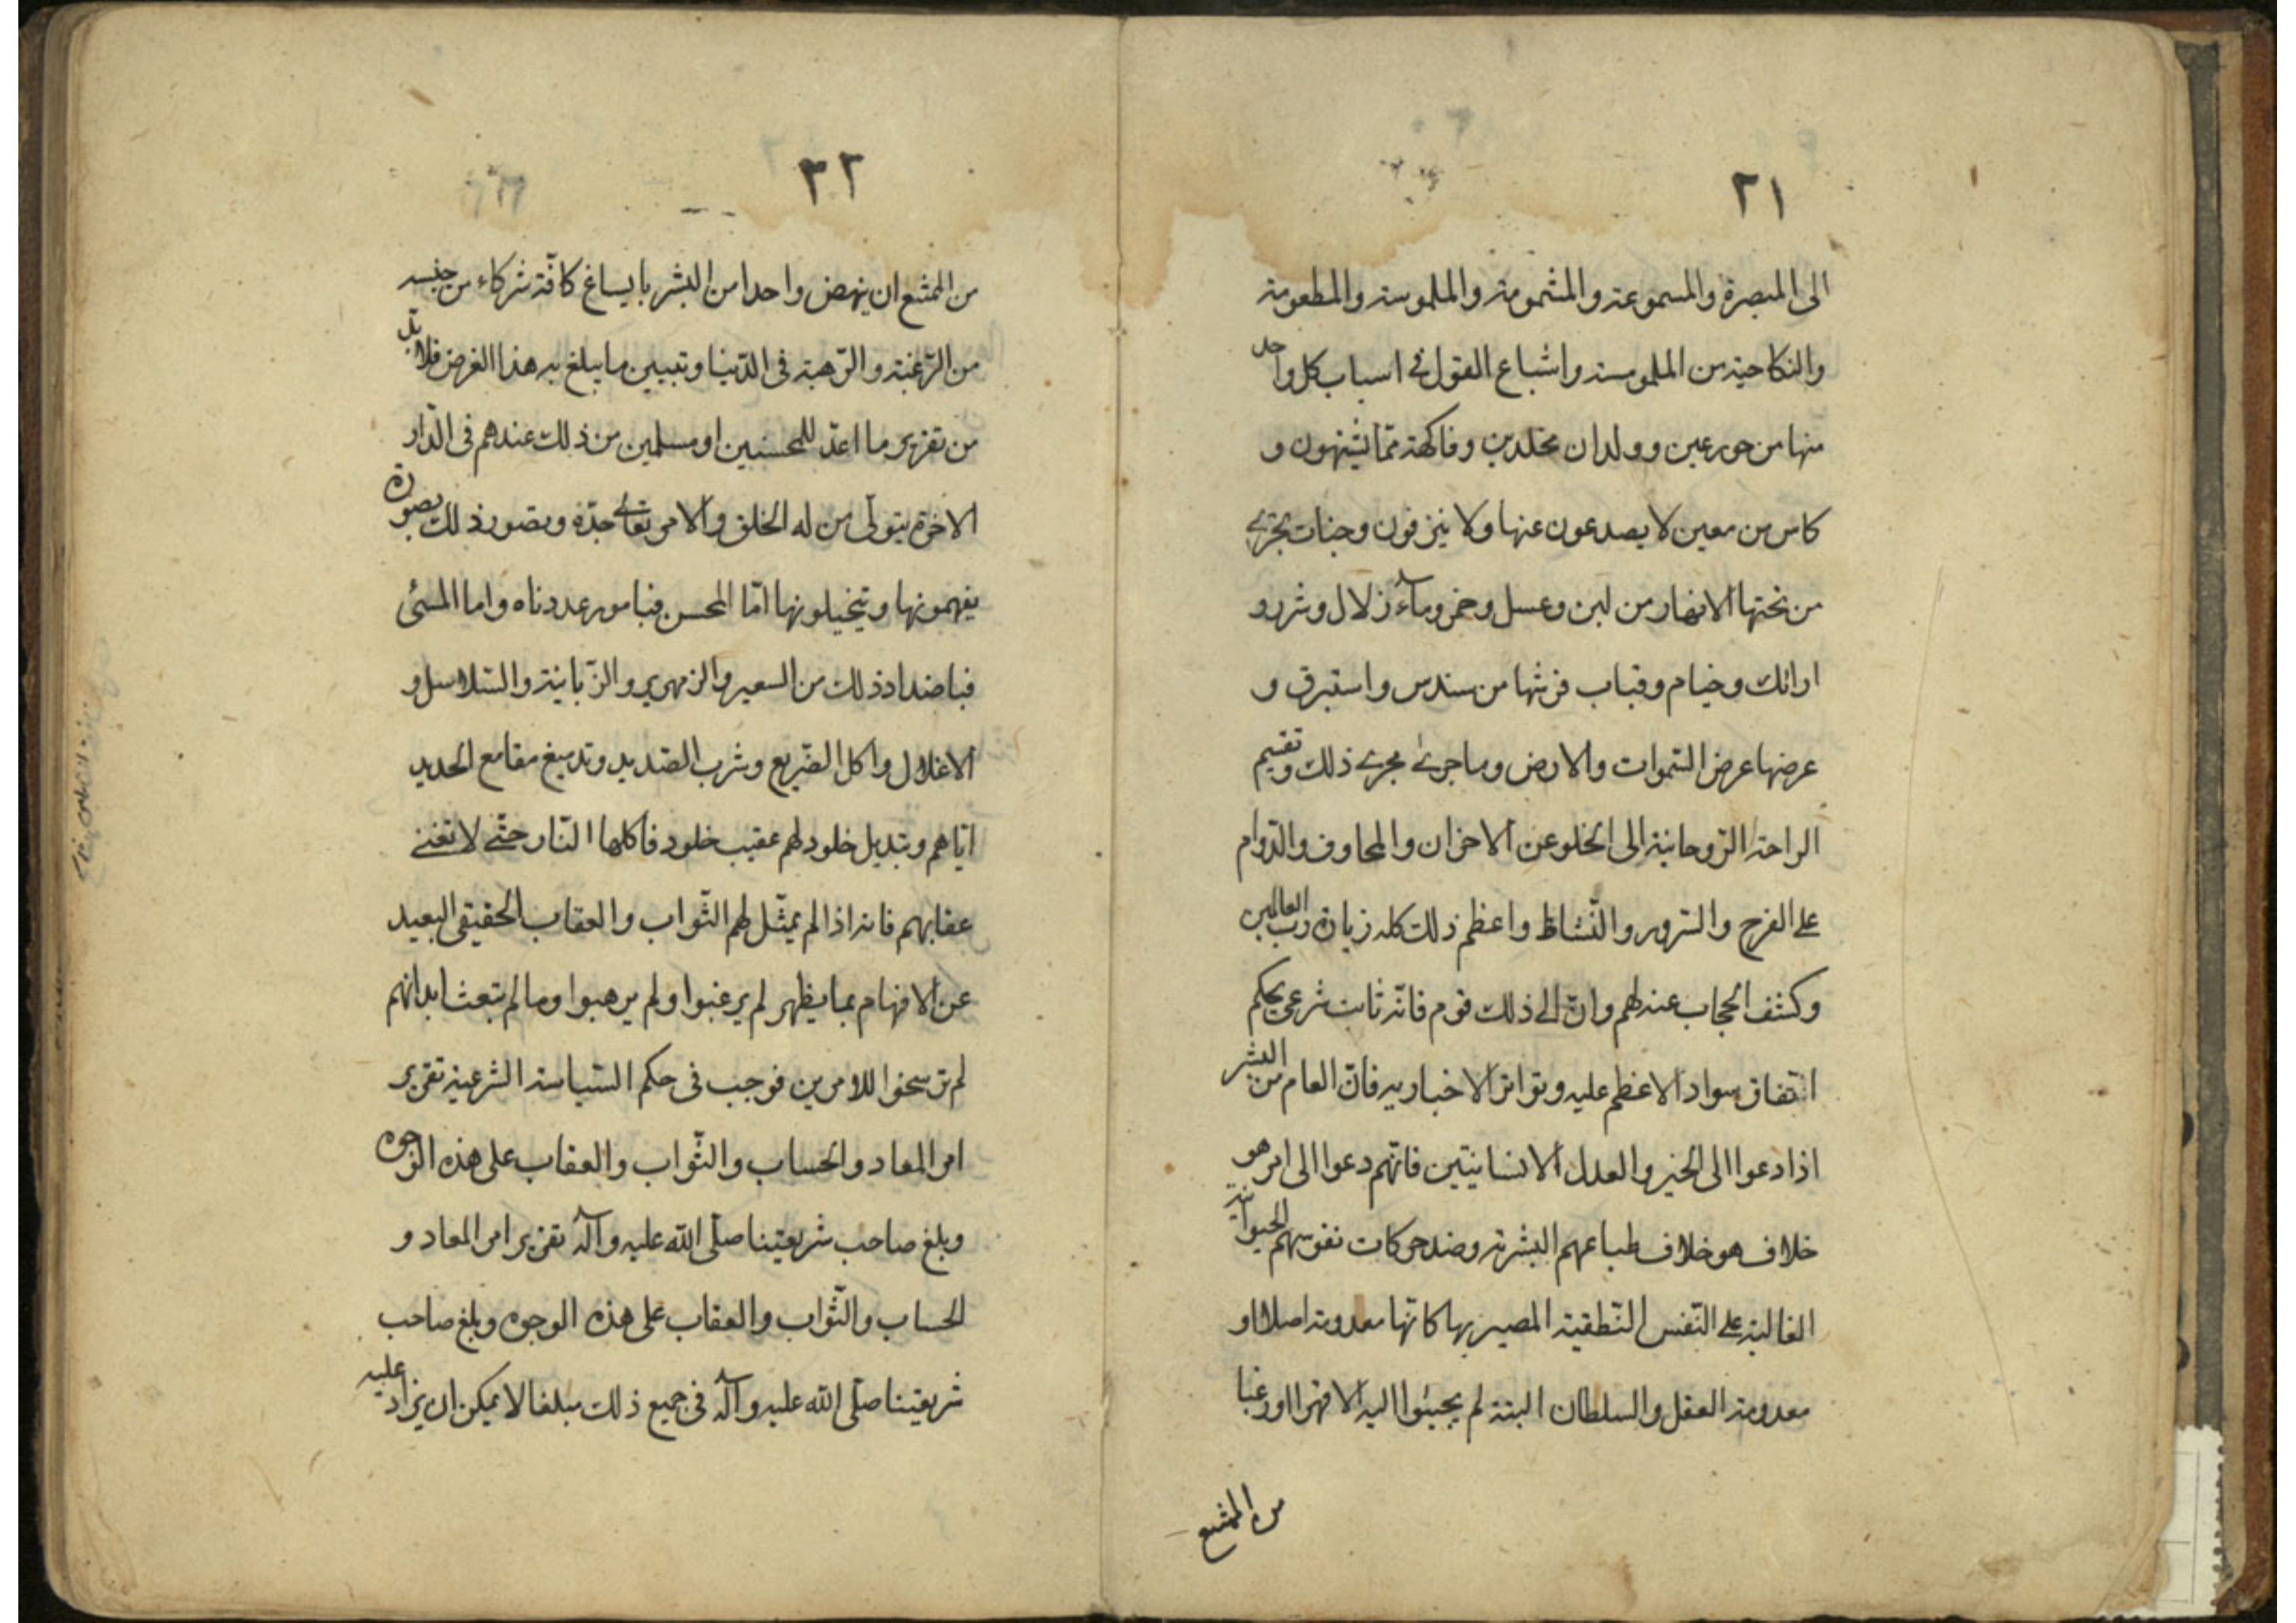 ٢١
الى المبصرة والمسموعة والمشمومة والملموسة والمطعومة
والنكاحية من الملموسة واشباع القول فى اسباب كل واحد
منها من حور عين وولدان مخلدين وفاكهة مما يشتهون و
كاس من معين لا يصدعون عنها ولا ينزفون وجنات تجرى
من تحتها الانهار من لبن وعسل وخمر وماء زلال وسرر و
ارائك وخيام وقباب فرشها من سندس واستبرق و
عرضها عرض السموات والارض وما جرى مجرى ذلك وتقيم
الراحة الروحانية الى الخلو عن الاحزان والمخاوف والدوام
على الفرح والسرور والنشاط واعظم ذلك كله زيارة رب العالمين
وكشف الحجاب عنه لهم وان الى ذلك قوم فانه ثابت شرعى بحكم
اتفاق سواد الاعظم عليه وتواتر الاخبار به فان العام من البشر
اذا دعوا الى الخير والعدل الانسانيتين فانهم دعوا الى امر هو
خلاف هو خلاف طباعهم البشرية وضد حركات نفوسهم الحيوانية
الغالبة على النفس النطقية المصير بها كانها معدومة اصلا او
معدومة العقل والسلطان البتة لم يجيبوا اليه الا قهرا او رغبا
من الممتنع
٢٢
من الممتنع ان ينهض واحدا من البشر بايساغ كافة شركاء من جنسه
من الرغبة والرهبة فى الدنيا وتبيين ما يبلغ به هذا الغرض فلا بد
من تقرير ما اعد للمحسنين او مسلمين من ذلك عندهم فى الدار
الاخرة يتولى من له الخلق والامر تعالى جده ويصور ذلك بصورة
يفهمونها ويتخيلونها امّا المحسن فبامور عددناه واما المسئى
فباضداد ذلك من السعير والزمهرير والزبانية والسلاسل و
الاغلال واكل الضريع وشرب الصديد وتدميغ مقامع الحديد
اياهم وتبديل جلود لهم عقيب جلود فاكلها النار حتى لا تغنى
عقابهم فانه اذا لم يمثل لهم الثواب والعقاب الحقيقى البعيد
عن الافهام بما يظهر لم يرغبوا ولم يرهبوا وما لم تبعث ابدانهم
لم ترسخوا للامرين فوجب فى حكم السياسة الشرعية تقرير
امر المعاد والحساب والثواب والعقاب على هذه الوجوه
وبلغ صاحب شريعتنا صلى الله عليه وآله تقرير امر المعاد و
الحساب والثواب والعقاب على هذه الوجوه وبلغ صاحب
شريعتنا صلى الله عليه وآله فى جميع ذلك مبلغا لا يمكن ان يزاد عليه